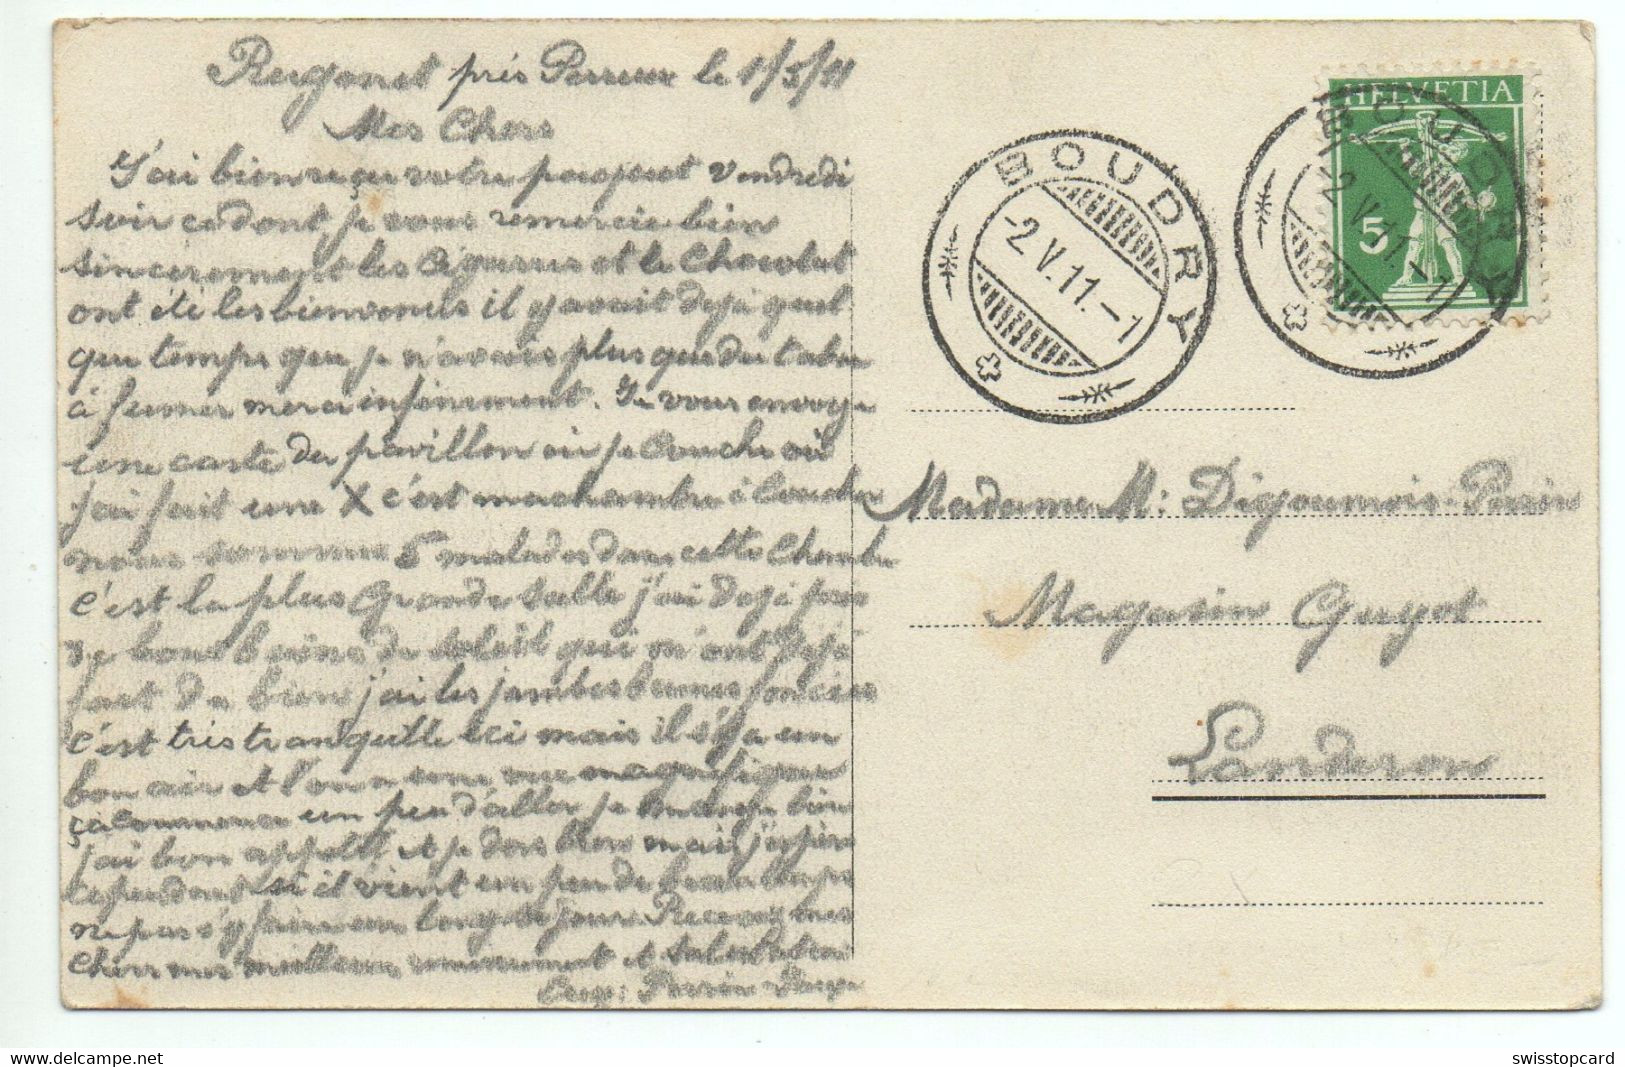 près Perreux le 1/5/11
Mes Chers
J'ai bien reçu votre paquet Vendredi
soir ce dont je vous remercie bien
sincerement les Cigarres et le Chocolat
ont été les bienvenus il y avait dejà quel
que temps que je n'avais plus que du tabac
à fumer merci infiniment. Je vous envoye
une carte du pavillon où je couche où
j'ai fait une X c'est ma chambre à coucher
nous sommes 5 malades dans cette Chambre
c'est la plus Grande salle j'ai dejà pris
de bons bains de soleil qui m'ont dejà
fait du bien j'ai les jambes brunes foncées
c'est très tranquille ici mais il y a un
bon air et l'on a une vue magnifique
ça commence un peu d'aller je mange bien
j'ai bon appétit et je dors bien mais j'espère
cependant si il vient un peu de beau temps
ne pas y faire un long séjour. Recevez mes
Chers mes meilleurs et salutations
Perrin
HELVETIA
5
BOUDRY
-2.V.11.-1
BOUDRY
-2.V.11.-1
Madame M: Digournois-Perrin
Magasin Guyot
Landeron
Ma Collection
swisstopcard